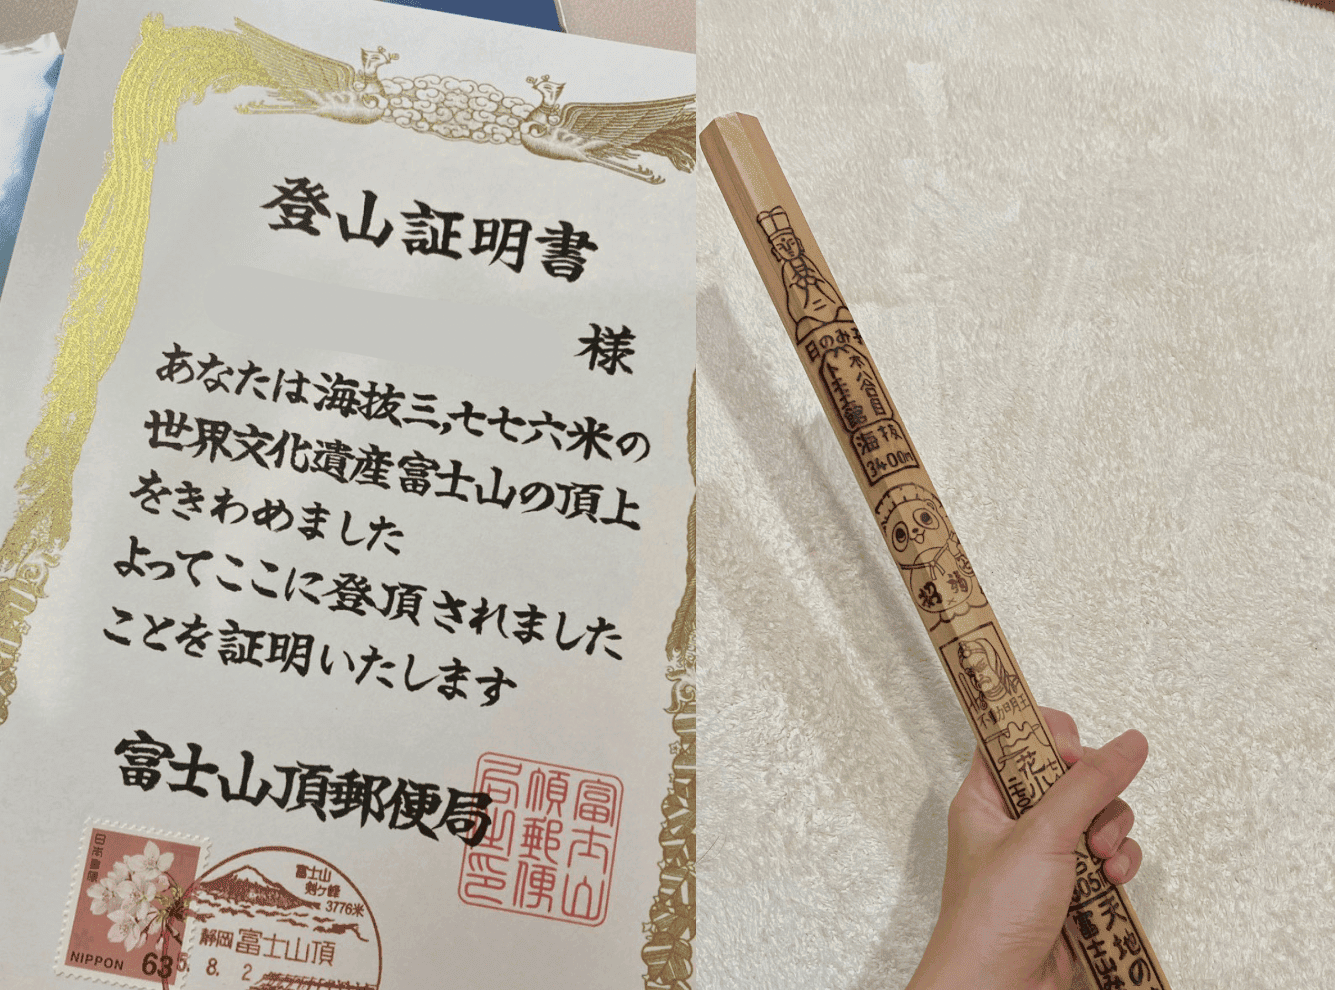 登山証明書
様
あなたは海抜三,七七六米の
世界文化遺産富士山の頂上
をきわめました
よってここに登頂されました
ことを証明いたします
富士山頂郵便局
富士山
頂郵便
局之印
日本郵便
NIPPON 63
富士山
剣ヶ峰
3776米
静岡 富士山頂
5. 8. 2
日のみ子
八合目
トモエ館
海抜
3400m
招福
不動明王
花小
天地の
富士山